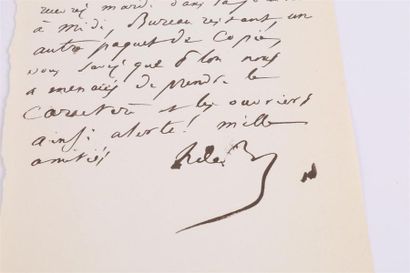 mardi dans la
à midi, Bureau restant, un
autre paquet de Copie,
vous savez que l'on nous
a menacés de prendre le
caractère et les ouvriers
ainsi alerte! mille
amitiés